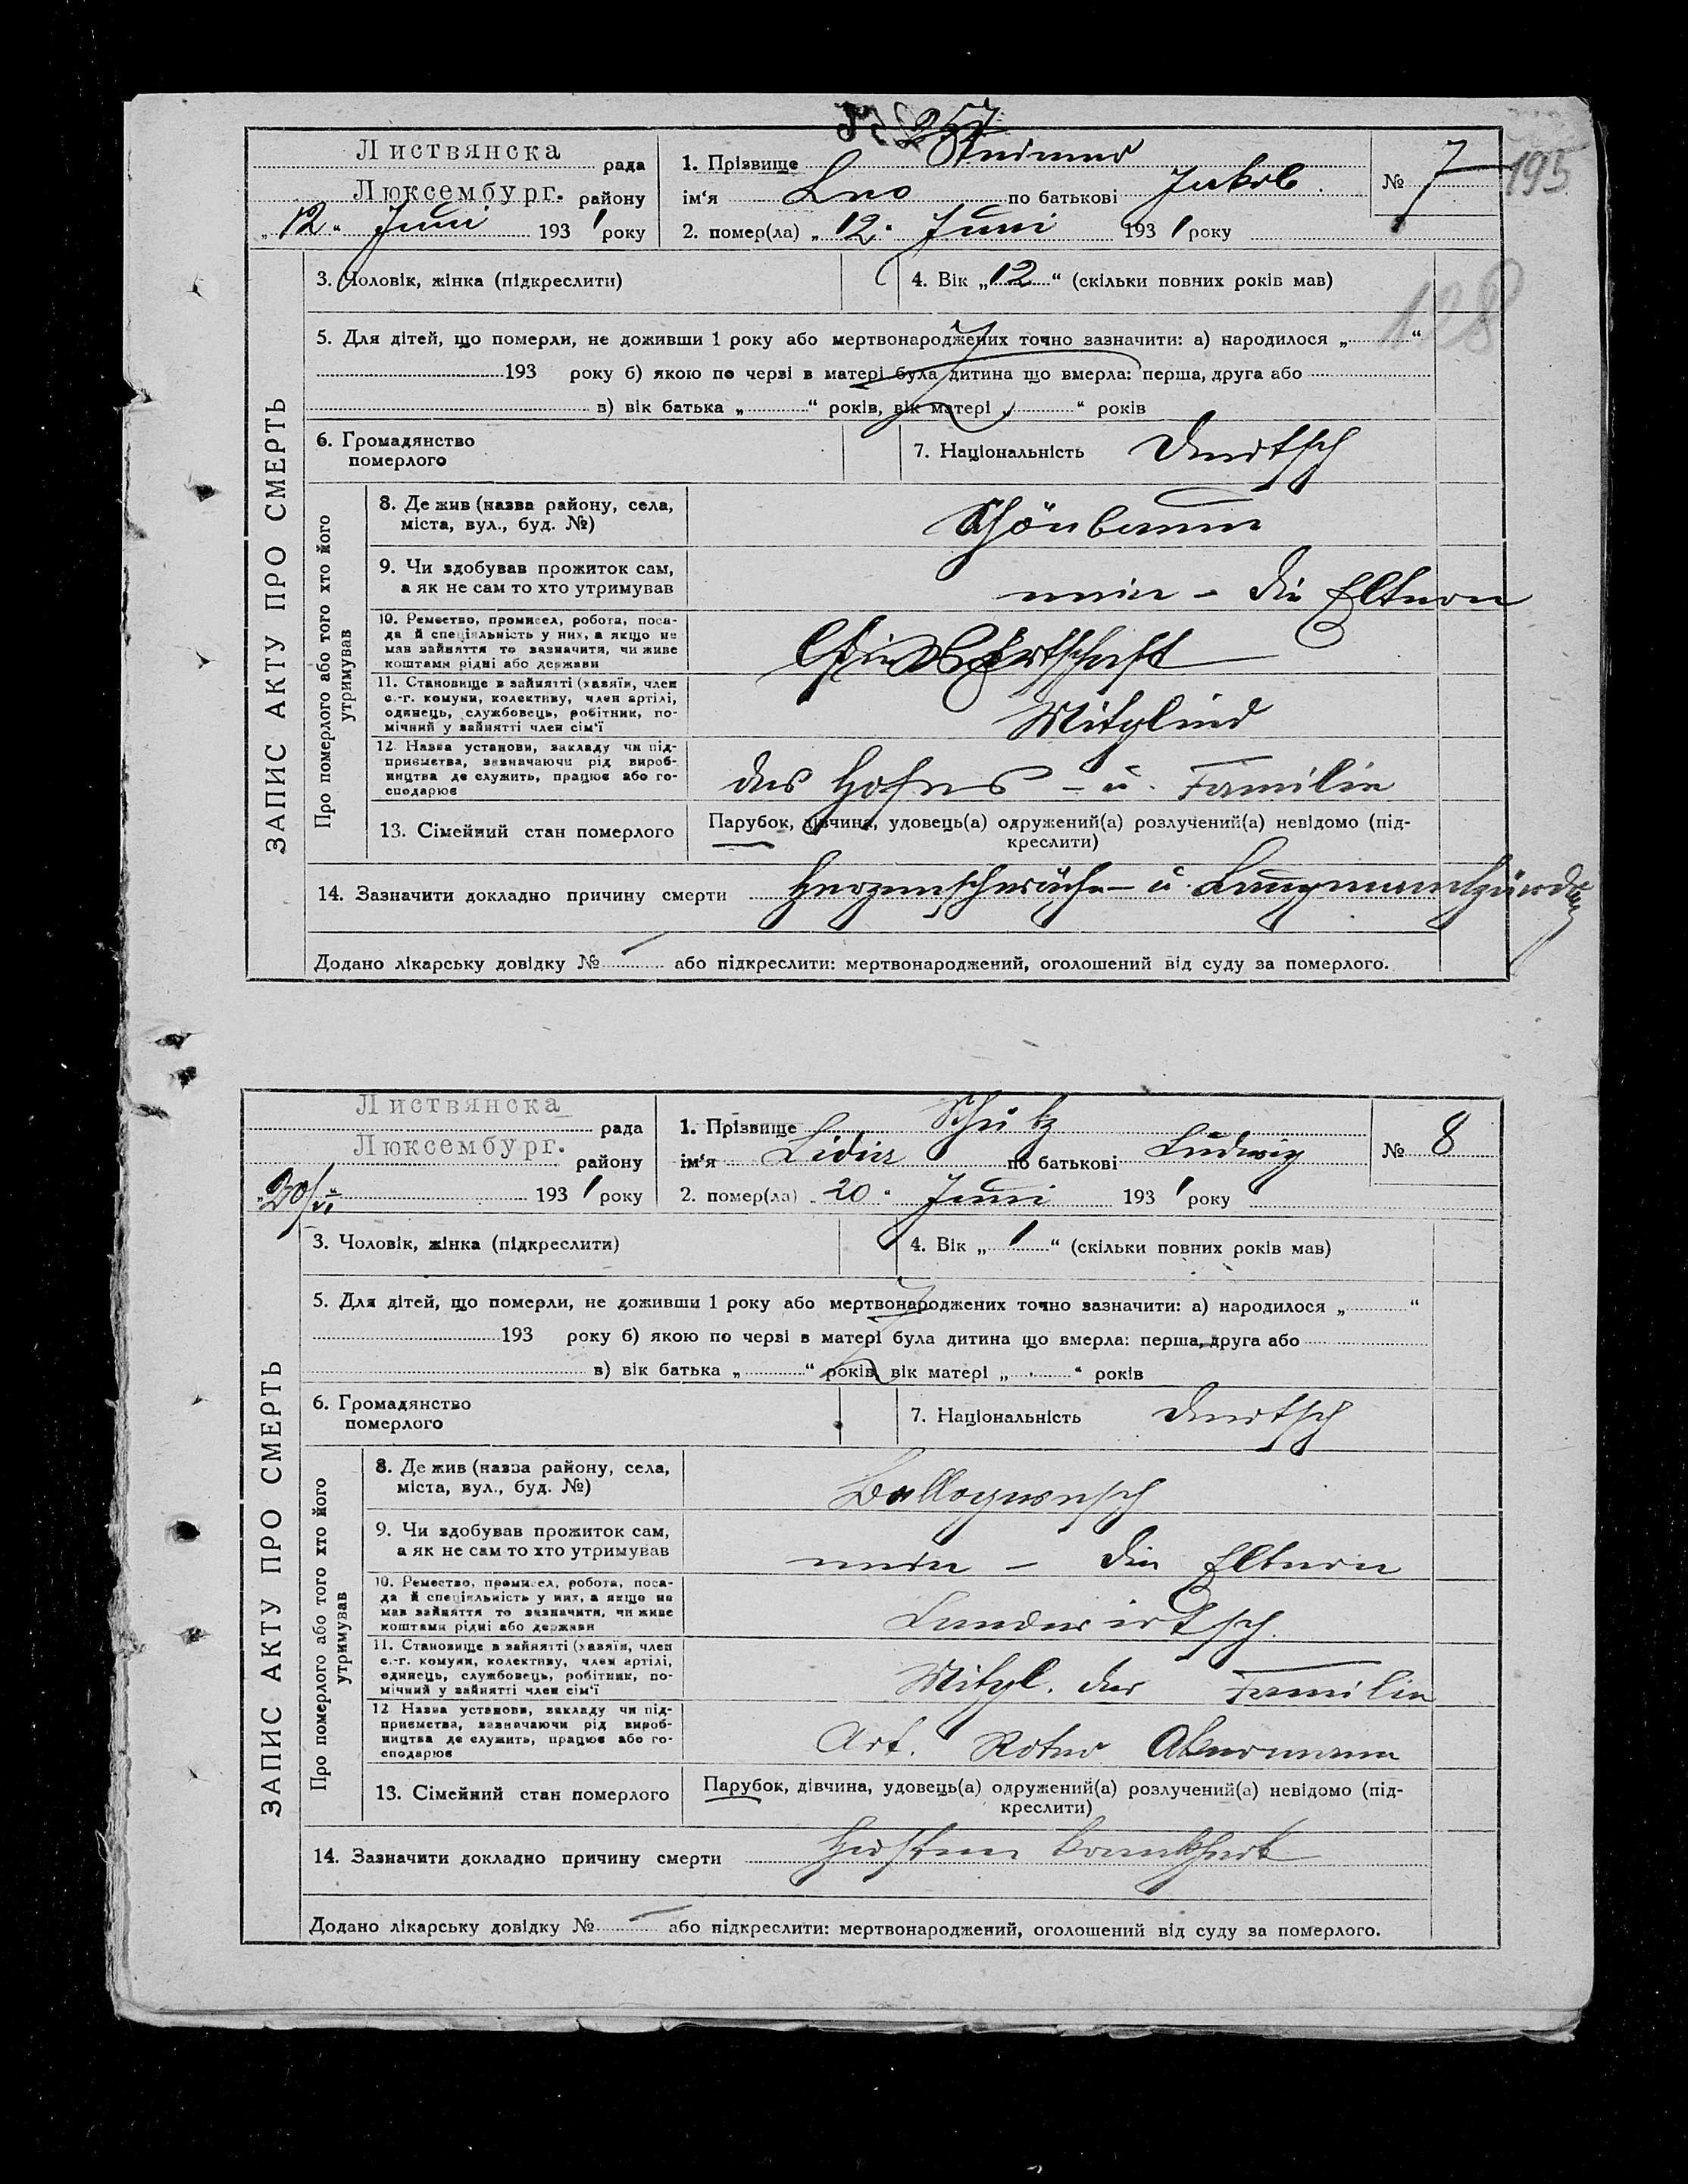 257
Листвянска рада
1. Прізвище
Люксембург. району
ім‘я Leo по батькові Jakob.
№ 7
195
„12“ Juni 1931 року
2. помер(ла) „12“ Juni 1931 року
3. Чоловік, жінка (підкреслити)
4. Вік „12“ (скільки повних років мав)
128
5. Для дітей, що померли, не доживши 1 року або мертвонароджених точно зазначити: а) народилося „ “
193 року б) якою по черзі в матері була дитина що вмерла: перша, друга або
в) вік батька „ “ років, вік матері „ “ років
6. Громадянство
померлого
7. Національність Deutsch
ЗАПИС АКТУ ПРО СМЕРТЬ
Про померлого або того хто його
утримував
8. Де жив (назва району, села,
міста, вул., буд. №)
Schönbaum
9. Чи здобував прожиток сам,
а як не сам то хто утримував
nein - die Eltern
10. Ремество, промисел, робота, поса-
да й спеціяльність у них, а якщо не
мав зайняття то зазначити, чи живе
коштами рідні або держави
11. Становище в зайнятті (хазяїн, член
с.-г. комуни, колективу, член артілі,
одинець, службовець, робітник, по-
мічний у зайнятті член сім'ї
Mitglied
12. Назва установи, закладу чи під-
приємства, зазначаючи рід вироб-
ництва де служить, працює або го-
сподарює
des Hofes - u. Familie
13. Сімейний стан померлого
Парубок, дівчина, удовець(а) одружений(а) розлучений(а) невідомо (під-
креслити)
14. Зазначити докладно причину смерти Herzenschwäche - u. Lungenentzündung
Додано лікарську довідку № або підкреслити: мертвонароджений, оголошений від суду за померлого.
Листвянска рада
1. Прізвище Schütz
Люксембург. району
ім‘я Lidia по батькові Ludwig
№ 8
„20/VI“ 1931 року
2. помер(ла) „20“ Juni 1931 року
3. Чоловік, жінка (підкреслити)
4. Вік „1“ (скільки повних років мав)
5. Для дітей, що померли, не доживши 1 року або мертвонароджених точно зазначити: а) народилося „ “
193 року б) якою по черзі в матері була дитина що вмерла: перша, друга або
в) вік батька „ “ років, вік матері „ “ років
6. Громадянство
померлого
7. Національність Deutsch
ЗАПИС АКТУ ПРО СМЕРТЬ
Про померлого або того хто його
утримував
8. Де жив (назва району, села,
міста, вул., буд. №)
9. Чи здобував прожиток сам,
а як не сам то хто утримував
nein - die Eltern
10. Ремество, промисел, робота, поса-
да й спеціяльність у них, а якщо не
мав зайняття то зазначити, чи живе
коштами рідні або держави
Landwirtsch.
11. Становище в зайнятті (хазяїн, член
с.-г. комуни, колективу, член артілі,
одинець, службовець, робітник, по-
мічний у зайнятті член сім'ї
Mitgl. der Familie
12. Назва установи, закладу чи під-
приємства, зазначаючи рід вироб-
ництва де служить, працює або го-
сподарює
Art. Roter Akermann
13. Сімейний стан померлого
Парубок, дівчина, удовець(а) одружений(а) розлучений(а) невідомо (під-
креслити)
14. Зазначити докладно причину смерти
Додано лікарську довідку № або підкреслити: мертвонароджений, оголошений від суду за померлого.